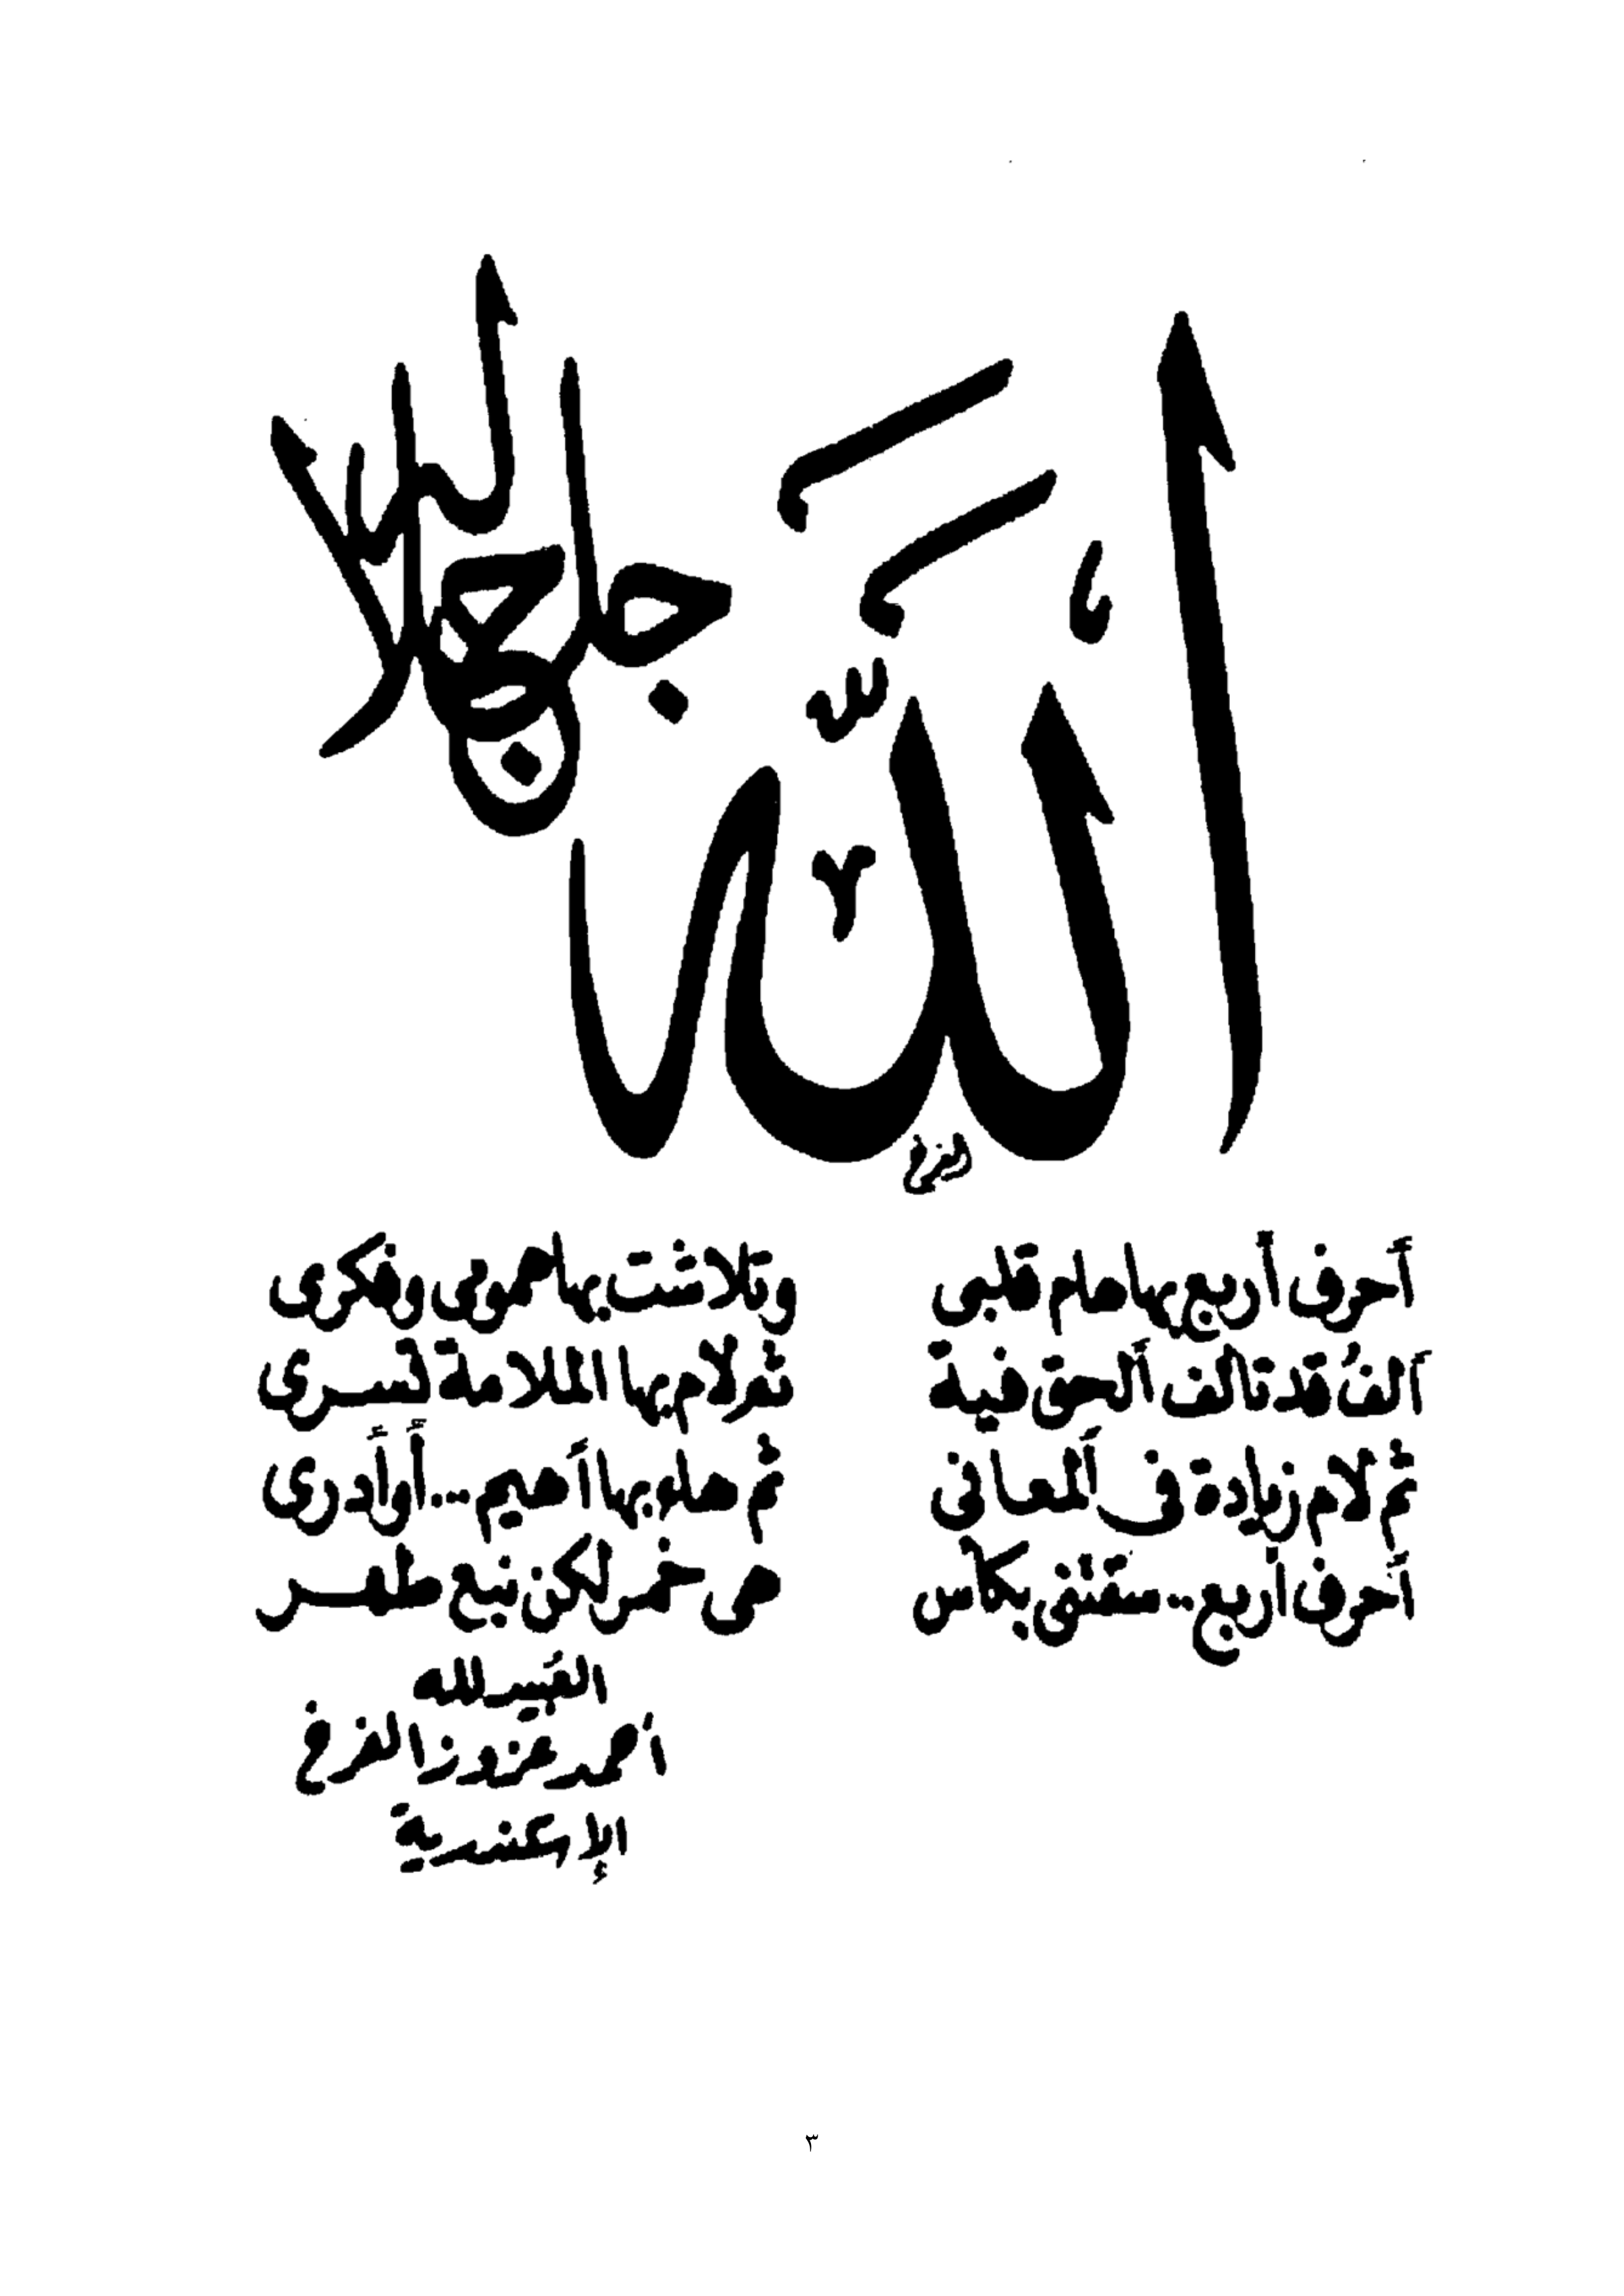 الله
جل جلاله
أحرف أربع بها هام قلبى وتلاشت بها همومى وفكرى
ألفٌ قد تآلف ألحق فية ثم لام بها الملامة تسرى
ثم لام زيادة فى ألمعانى ثم هاء بها أهيم... أو أدرى
أحرف أربع.. ستسقى بكأس هى خمر لكن نبع طهر
العبد لله
أحمد
الإسكندرية
٣